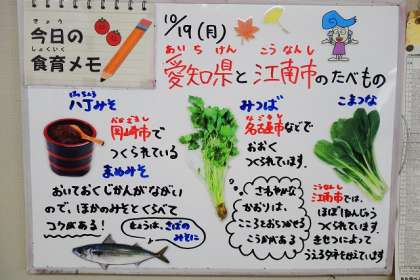 きょう
今日の
しょくいく
食育メモ
10/19(月)
あいちけん こうなんし
愛知県と江南市のたべもの
はっちょう
八丁みそ
おかざきし
岡崎市で
つくられている
まめみそ
おいておくじかんがながい
ので、ほかのみそとくらべて
コクがある!
きょうは、さばの
みそに
みつば
なごやし
名古屋市などで
おおく
つくられています。
さわやかな
かおりは、こ
ころをおちつかせる
こうかがある
こまつな
こうなんし
江南市では、
ほぼ1ねんじゅう
つくられています。
きせつによって
うえるタネをかえています